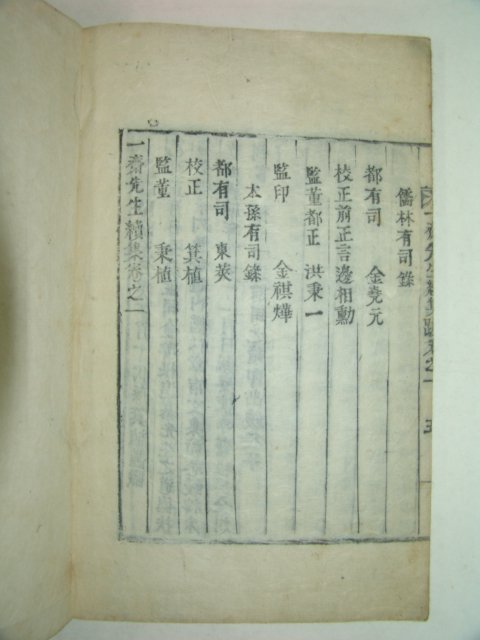 儒林有司錄
都有司 金堯元
校正前正言邊相勳
監董都正 洪秉一
監印 金祺燁
本孫有司錄
都有司 東莢
校正 箕植
監董 秉植
一齋先生續集卷之一